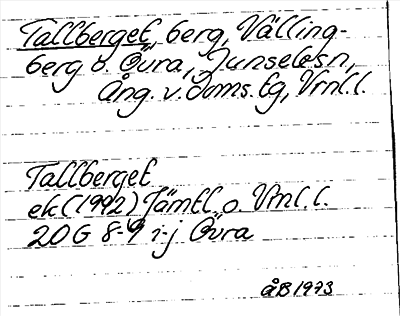 Tallberget, berg, Välling-
berg o. Övra, Junselesn,
Ång. v. doms. tg, Vrnl.l.
Tallberget
ek (1992) Jämtl. o. Vrnl.l.
20 G 8-9 i-j Övra
ÅB 1973